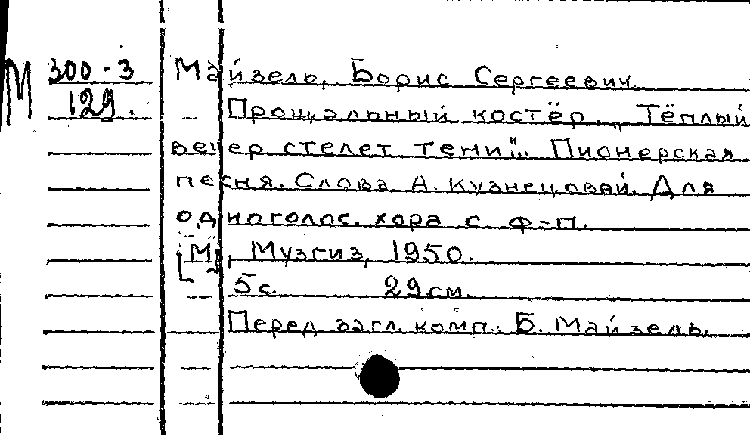 М 300-3 Майзель, Борис Сергеевич.
129. Прощальный костёр. „Тёплый
вечер стелет тени...". Пионерская
песня. Слова А. Кузнецовой. Для
одноголос. хора с ф-п.
[М], Музгиз, 1950.
5с. 29см.
Перед загл. комп.: Б. Майзель.